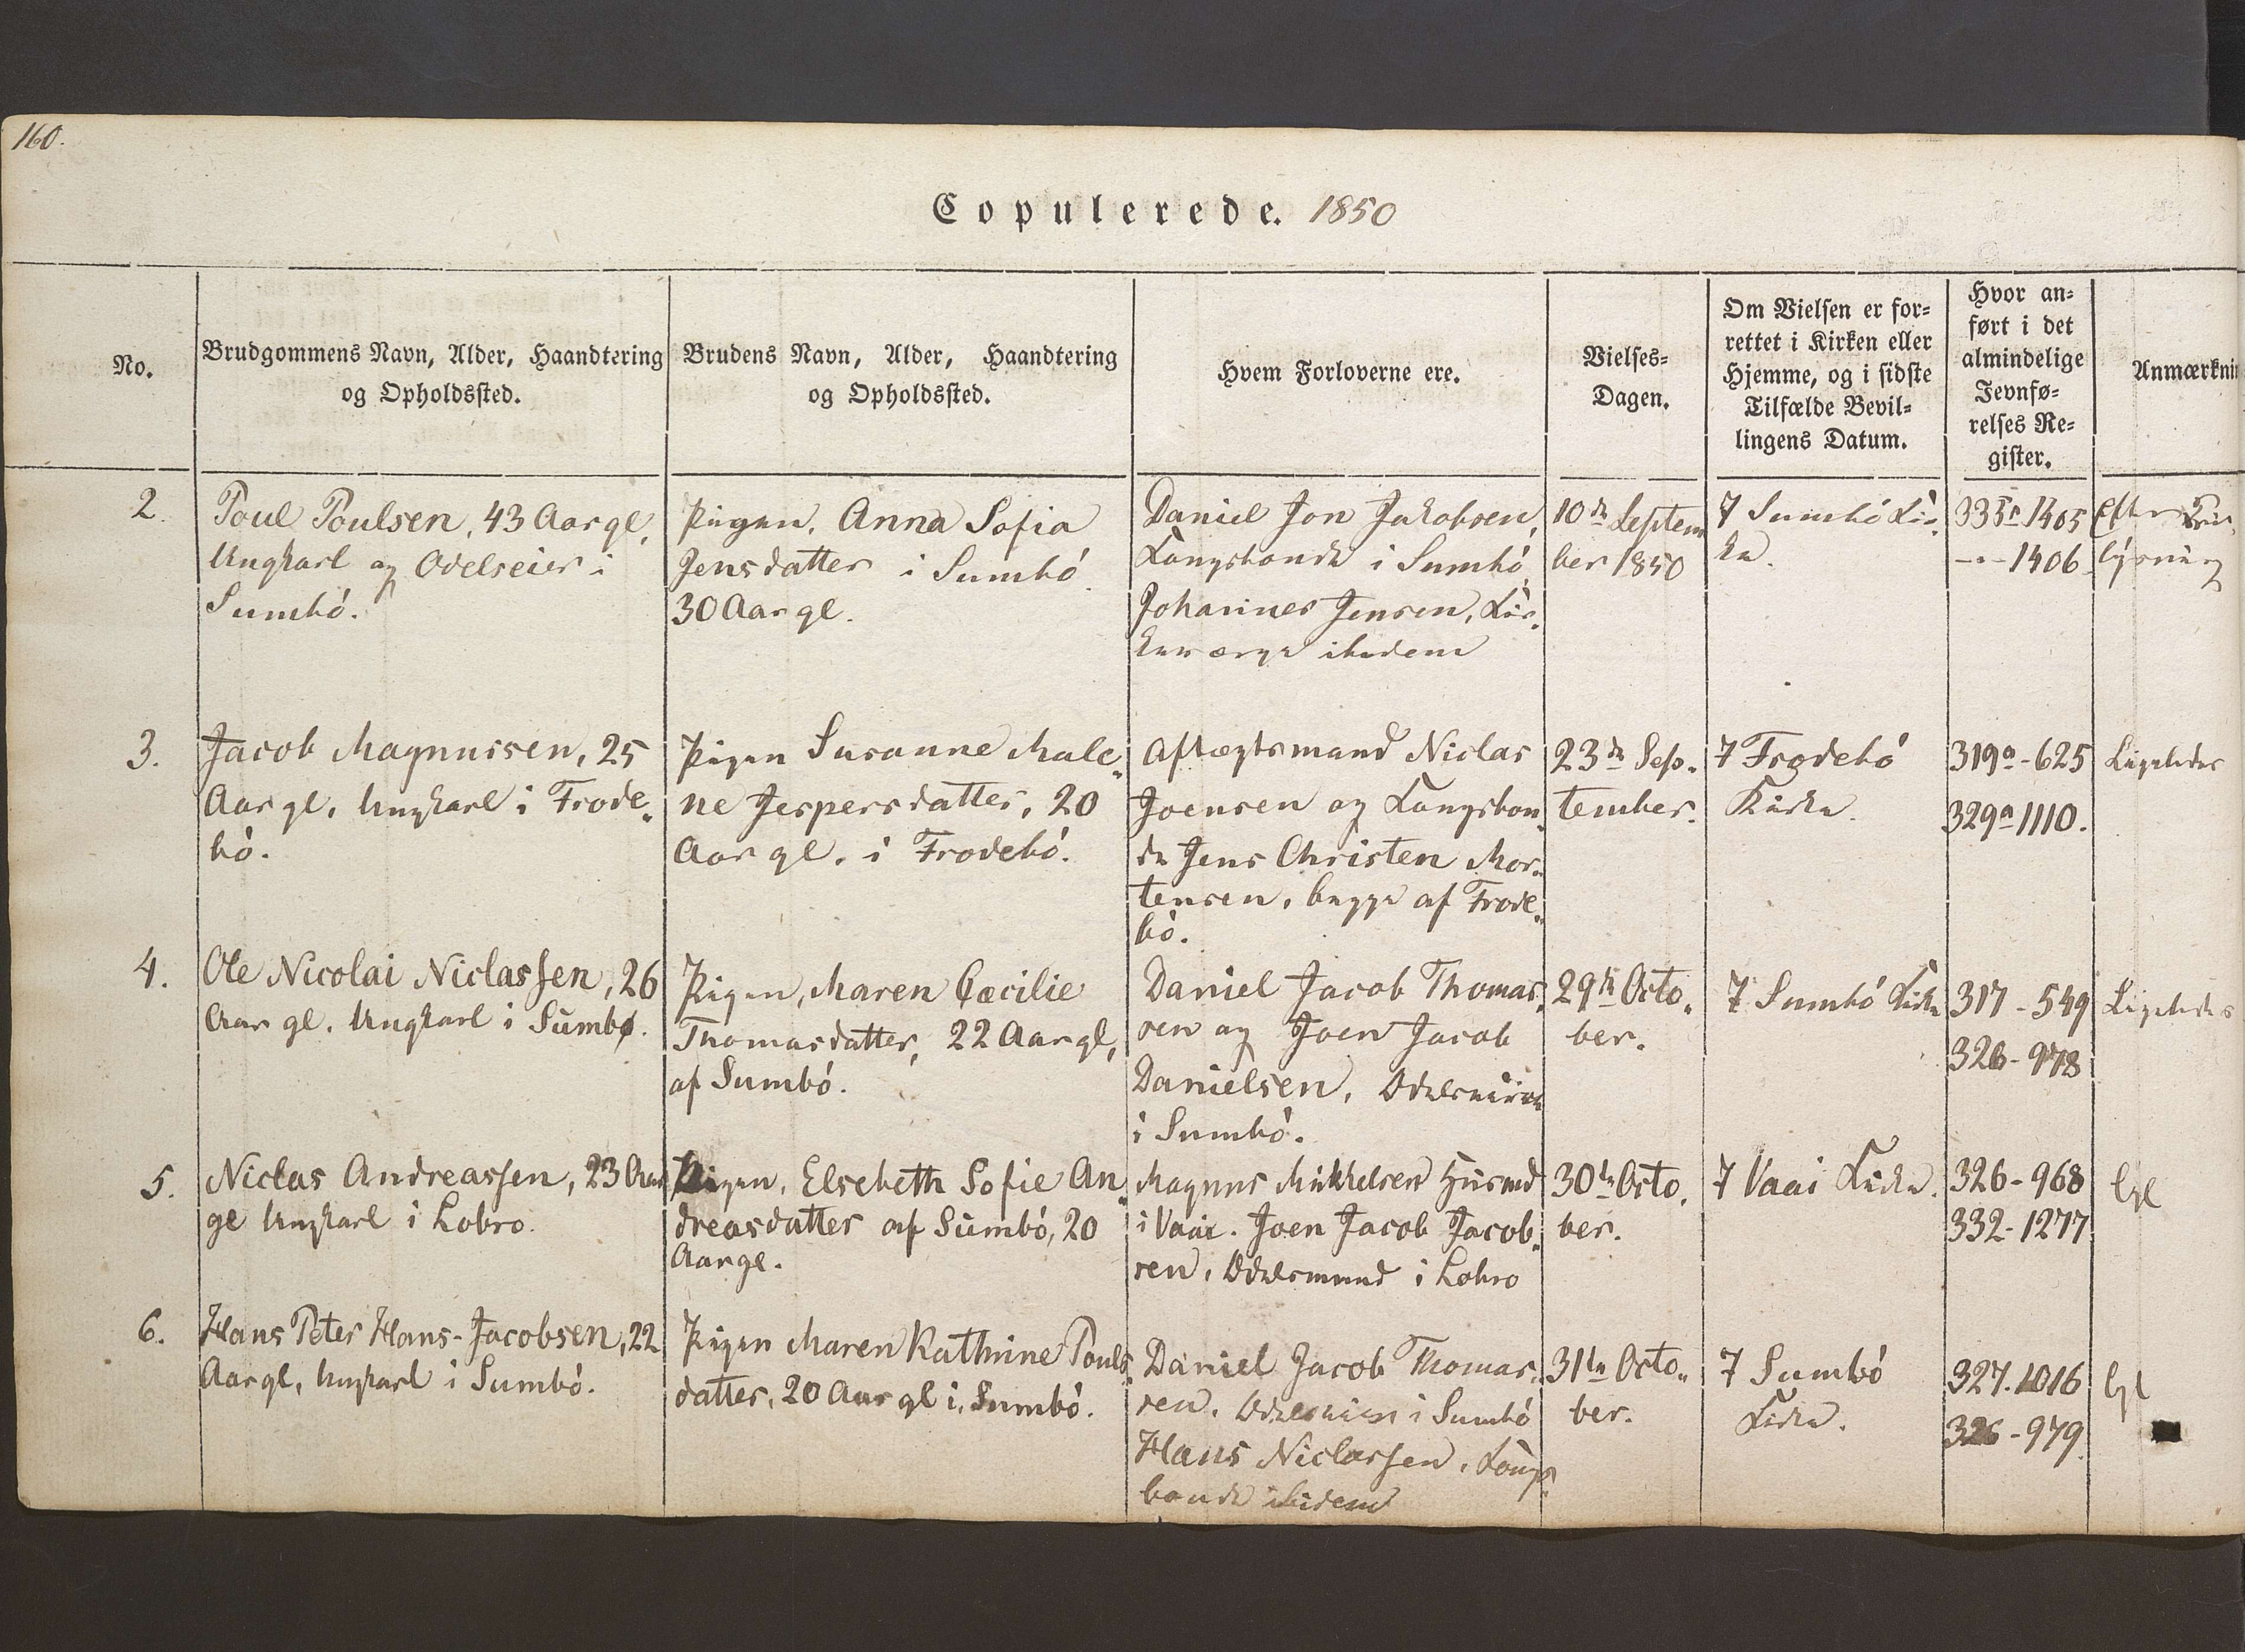 160.
Copulerede. 1850
No.
Brudgommens Navn, Alder, Haandtering
og Opholdssted.
Brudens Navn, Alder, Haandtering
og Opholdssted.
Hvem Forloverne ere.
Vielses-
Dagen.
Om Vielsen er for-
rettet i Kirken eller
Hjemme, og i sidste
Tilfælde Bevil-
lingens Datum.
Hvor an-
ført i det
almindelige
Jevnfø-
relses Re-
gister.
Anmærknin
2.
Poul Poulsen, 43 Aar gl,
Ungkarl og Odelseier i
Sumbó.
Pigen, Anna Sofia
Jensdatter i Sumbó
30 Aar gl.
Daniel Jon Jakobsen,
Kongsbonde i Sumbó
Johannes Jensen, Kir-
keværge ibidem
10de Septem
ber 1850
I Sumbó Kir-
ke.
1405
-"- 1406
Efter
lysning
3.
Jacob Magnussen, 25
Aar gl, Ungkarl i Frode-
bó.
Pigen Susanne Male-
ne Jespersdatter, 20
Aar gl. i Frodebó.
Aftægtsmand Niclas
Joensen og Kongsbon-
de Jens Christen Mor-
tensen, begge af Frode-
bó.
23de Sep-
tember.
I Frodebó
Kirke.
319a - 625
329a 1110.
Ligeledes
4.
Ole Nicolai Niclassen, 26
Aar gl. Ungkarl i Sumbø.
Pigen, Maren Cæcilie
Thomasdatter, 22 Aar gl,
af Sumbó.
Daniel Jacob Thomas-
sen og Joen Jacob
Danielsen, Odelseiere
i Sumbó.
29de Octo-
ber.
I Sumbó Kirke
317 - 549
326 - 978
Ligeledes
5.
Niclas Andreassen, 23 Aar
gl Ungkarl i Lobro.
Pigen, Elsebeth Sofie An-
dreasdatter af Sumbó, 20
Aar gl.
Magnus Mikkelsen Husmd
i Vaai. Joen Jacob Jacob-
sen, Odelsmand i Lobro
30te Octo-
ber.
I Vaai Kirke.
326 - 968
332 - 1277
lgl
6.
Hans Peter Hans-Jacobsen, 22
Aar gl, Ungkarl i Sumbó.
Pigen Maren Kathrine Pouls-
datter, 20 Aar gl i, Sumbó.
Daniel Jacob Thomas-
sen, Odelseier i Sumbó
Hans Niclassen, Kongs-
bonde ibidem
31te Octo-
ber.
I Sumbó
Kirke.
327. 1016
326 - 979
lgl